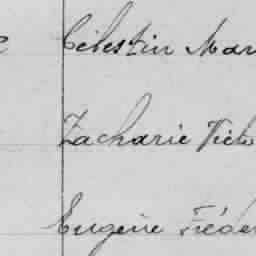 Célestin Mar
Zacharie Victo
Eugène Fréder